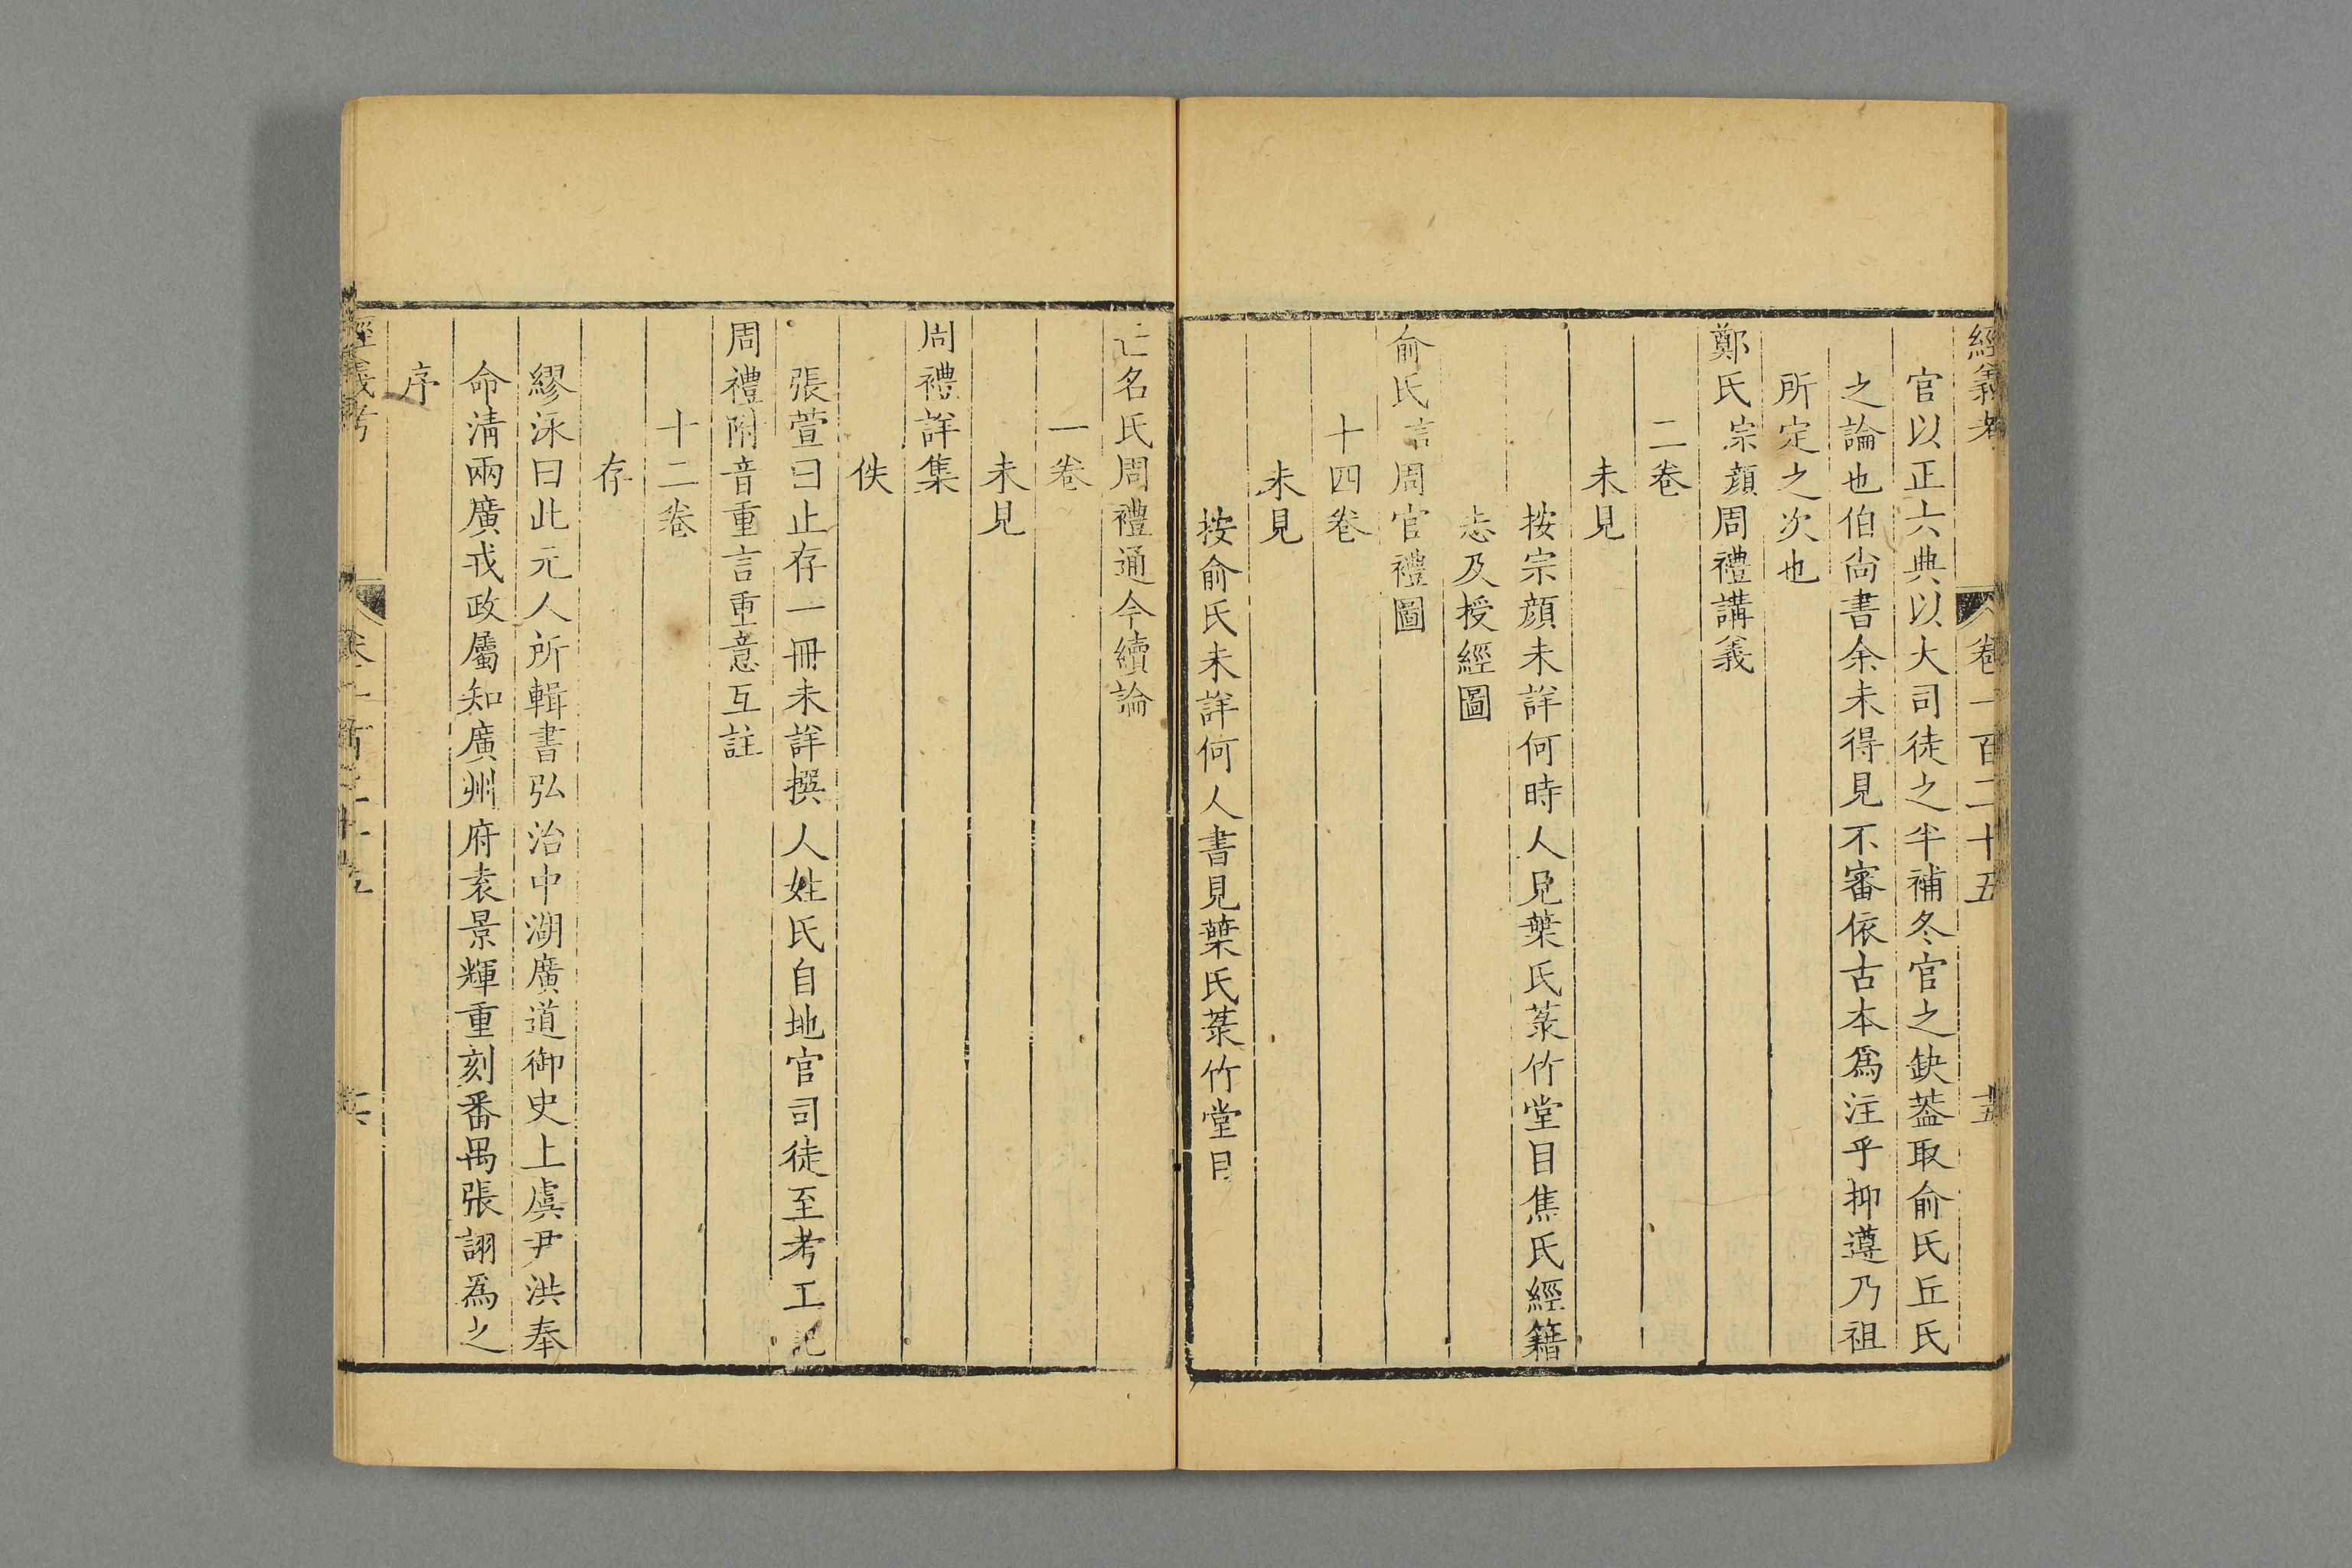 經義考 卷一百二十五
官以正六典以大司徒之半補冬官之缺葢取俞氏丘氏
之論也伯尙書余未得見不審依古本爲注乎抑遵乃祖
所定之次也
鄭氏宗顔周禮講義
二卷
未見
按宗顔未詳何時人見葉氏菉竹堂目焦氏經籍
志及授經圖
俞氏言周官禮圖
十四卷
未見
按俞氏未詳何人書見葉氏菉竹堂目
亡名氏周禮通今續論
一卷
未見
周禮詳集
佚
張萱曰止存一冊未詳撰人姓氏自地官司徒至考工記
周禮附音重言重意互註
十二卷
存
繆泳曰此元人所輯書弘治中湖廣道御史上虞尹洪奉
命淸兩廣戎政屬知廣州府袁景輝重刻番禺張詡爲之
序
經義考